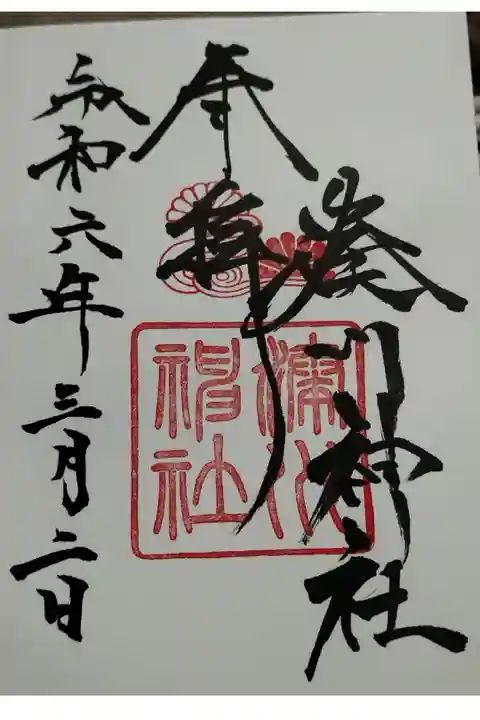 湊川神社
奉拝
湊川神社
令和六年三月二日